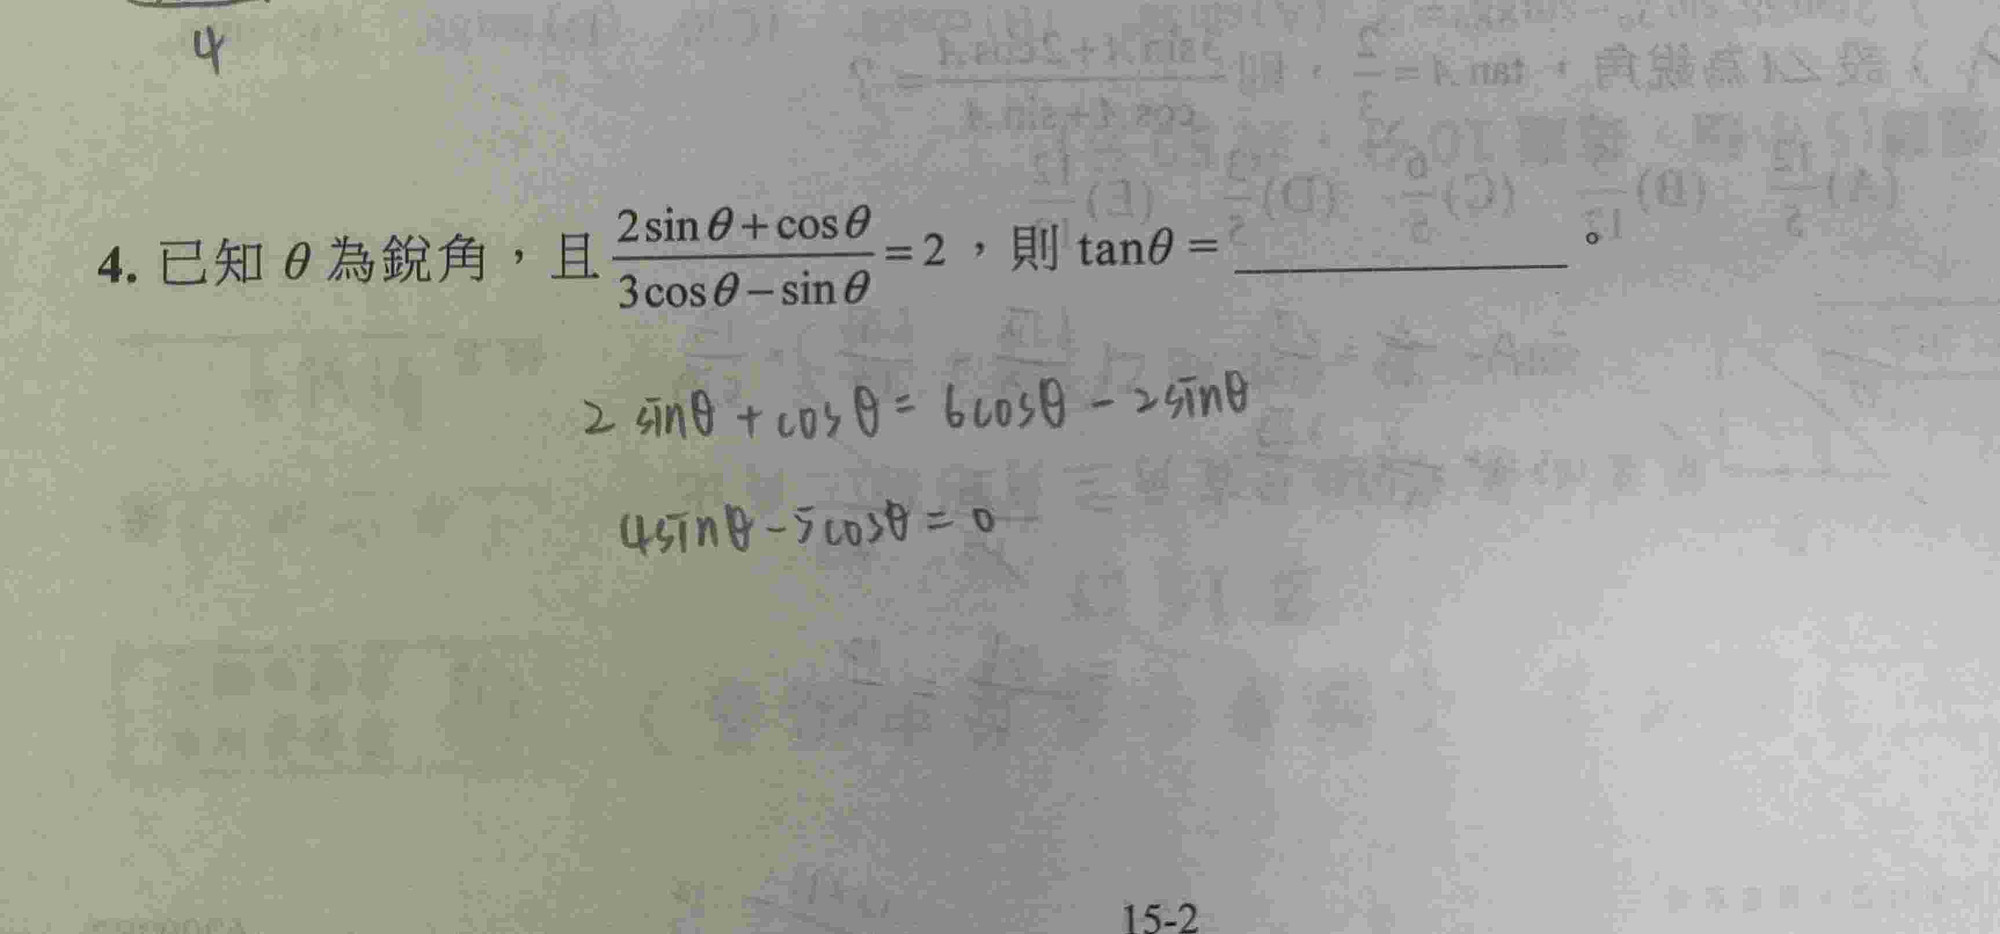 4
4. 已知 θ 為銳角，且 \frac{2sinθ+cosθ}{3cosθ−sinθ}=2，則 tanθ = ____________。
2 sinθ + cosθ = 6cosθ − 2sinθ
4sinθ − 5cosθ = 0
15-2